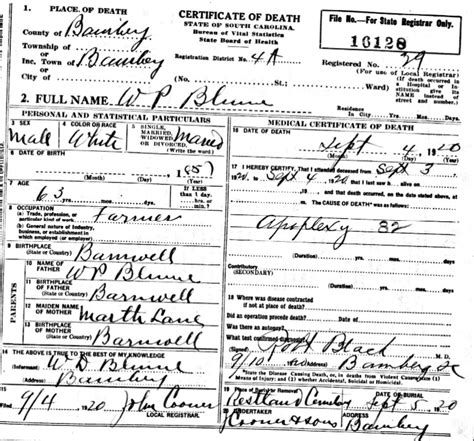 1. PLACE OF DEATH
County of Bamberg
Township of
or
Inc. Town of Bamberg
or
City of
CERTIFICATE OF DEATH
STATE OF SOUTH CAROLINA.
Bureau of Vital Statistics
State Board of Health
Registration District No. 4A
File No.—For State Registrar Only.
16128
Registered No. 39
(For use of Local Registrar)
(If death occurred in a Hospital or Institution give its NAME instead of street and number.)
Ward)
2. FULL NAME W P Blume
Residence
In City Yrs. Mos. Days
PERSONAL AND STATISTICAL PARTICULARS
3 SEX Male
4 COLOR OR RACE White
5 SINGLE, MARRIED, WIDOWED OR DIVORCED. (Write the word)
Married
6 DATE OF BIRTH
(Month) (Day) (Year)
1857
7 AGE
63
yrs. mos. ds.
If LESS than 1 day
hrs.
min.
8 OCCUPATION
(a) Trade, profession or particular kind of work
Farmer
(b) General nature of Industry, business, or establishment in which employed (or employer)
9 BIRTHPLACE
(State or Country)
Barnwell
PARENTS
10 NAME OF FATHER
W P Blume
11 BIRTHPLACE OF FATHER
(State or Country)
Barnwell
12 MAIDEN NAME OF MOTHER
Marth Lane
13 BIRTHPLACE OF MOTHER
(State or Country)
Barnwell
14 THE ABOVE IS TRUE TO THE BEST OF MY KNOWLEDGE
(Informant) W D Blume
(Address) Bamberg
15
Filed 9/4 1920 John Cooner
LOCAL REGISTRAR.
MEDICAL CERTIFICATE OF DEATH
16 DATE OF DEATH
Sept 4 1920
(Month) (Day) (Year)
17 I HEREBY CERTIFY, That I attended deceased from Sept 3
1920 to Sept 4 1920 that I last saw h alive on
The CAUSE OF DEATH* was as follows:
Apoplexy 82
(Duration) yrs. mos. ds.
Contributory
(SECONDARY)
(Duration) yrs. mos. ds.
18 Where was disease contracted
if not at place of death?
Did an operation precede death? Date of
Was there an autopsy?
What test confirmed diagnosis?
(Signed) Black M. D.
9/10 1920 (Address) Bamberg SC
19 PLACE OF BURIAL
DATE OF BURIAL
Sept 5 1920
20 UNDERTAKER
J Cooner & sons
ADDRESS
Bamberg